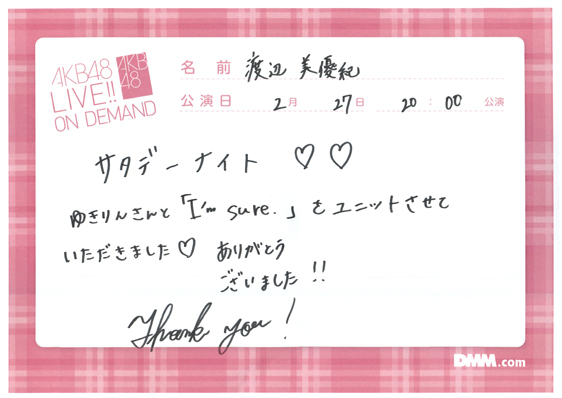 AKB48
LIVE!!
ON DEMAND
AKB
48
名 前 渡辺 美優紀
公演日 2月 27日 20:00 公演
サタデーナイト ♡♡
ゆきりんさんと「I'm sure.」をユニットさせて
いただきました♡ ありがとう
ございました!!
Thank you!
DMM.com